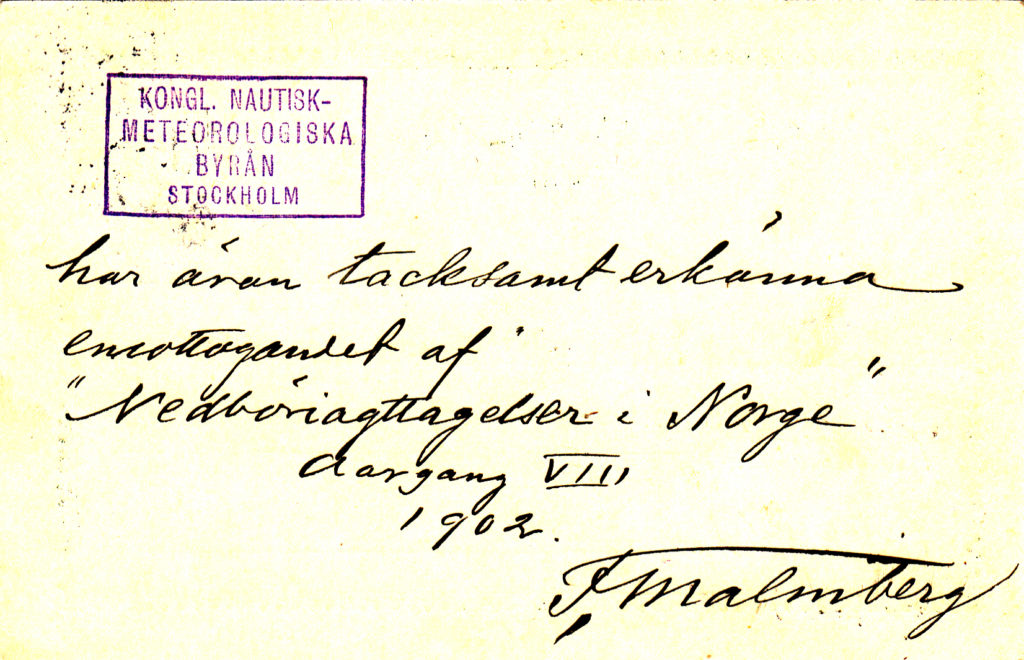 KONGL. NAUTISK-
METEOROLOGISKA
BYRÅN
STOCKHOLM
har äran tacksamt erkänna
emottagandet af
"Nedböriagttagelser i Norge"
Aargang VIII
1902.
F. Malmberg